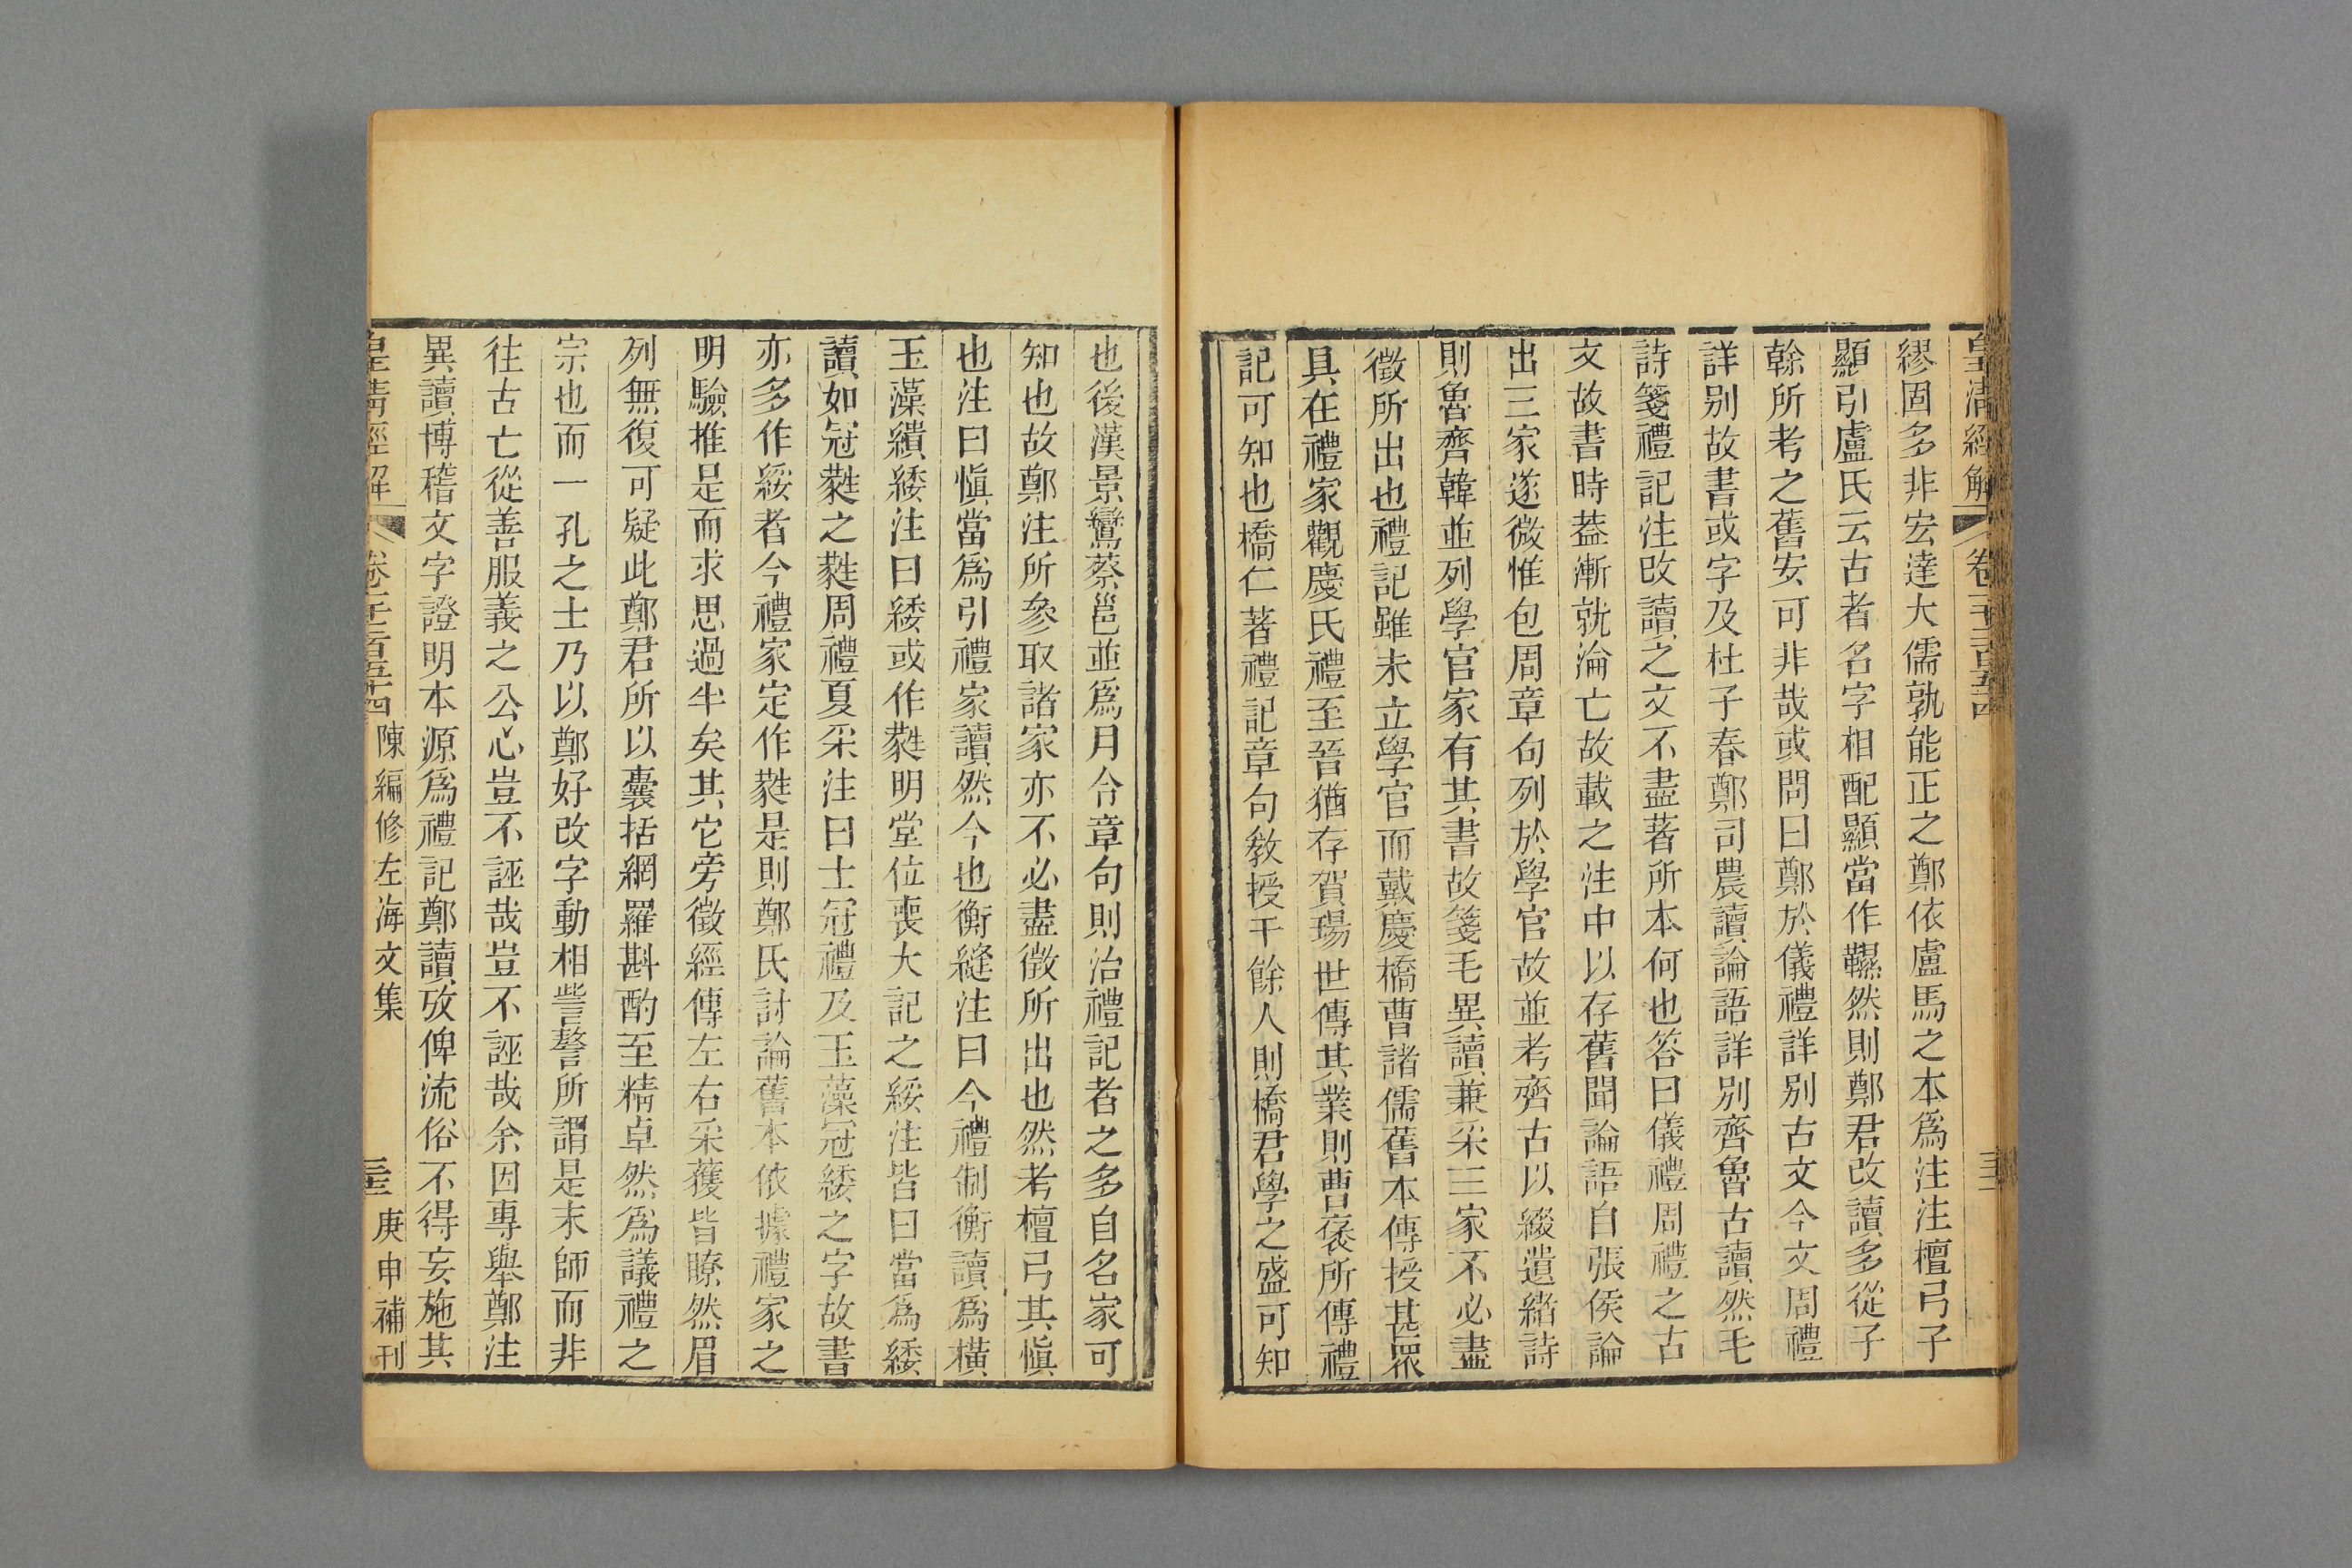 皇清經解
卷一千二百五十四
繆固多非宏達大儒孰能正之鄭依盧馬之本爲注注檀弓子
顯引盧氏云古者名字相配顯當作韅然則鄭君改讀多從子
榦所考之舊安可非哉或問曰鄭於儀禮詳别古文今文周禮
詳别故書或字及杜子春鄭司農讀論語詳别齊魯古讀然毛
詩箋禮記注改讀之文不盡著所本何也答曰儀禮周禮之古
文故書時葢漸就淪亡故載之注中以存舊聞論語自張侯論
出三家遂微惟包周章句列於學官故並考齊古以綴遺緒詩
則魯齊韓並列學官家有其書故箋毛異讀兼采三家不必盡
徵所出也禮記雖未立學官而戴慶橋曹諸儒舊本傳授甚眾
具在禮家觀慶氏禮至晉猶存賀瑒世傳其業則曹褒所傳禮
記可知也橋仁著禮記章句敎授千餘人則橋君學之盛可知
也後漢景鸞蔡邕並爲月令章句則治禮記者之多自名家可
知也故鄭注所參取諸家亦不必盡徵所出也然考檀弓其愼
也注曰愼當爲引禮家讀然今也衡縫注曰今禮制衡讀爲橫
玉藻繢緌注曰緌或作蕤明堂位喪大記之綏注皆曰當爲緌
讀如冠蕤之蕤周禮夏采注曰士冠禮及玉藻冠緌之字故書
亦多作綏者今禮家定作蕤是則鄭氏討論舊本依據禮家之
明驗推是而求思過半矣其它旁徵經傳左右采獲皆瞭然眉
列無復可疑此鄭君所以囊括網羅斟酌至精卓然爲議禮之
宗也而一孔之士乃以鄭好改字動相訾謷所謂是末師而非
往古亡從善服義之公心豈不誣哉豈不誣哉余因專舉鄭注
異讀博稽文字證明本源爲禮記鄭讀攷俾流俗不得妄施其
皇清經解
卷一千二百五十四
陳編修左海文集
庚申補刊